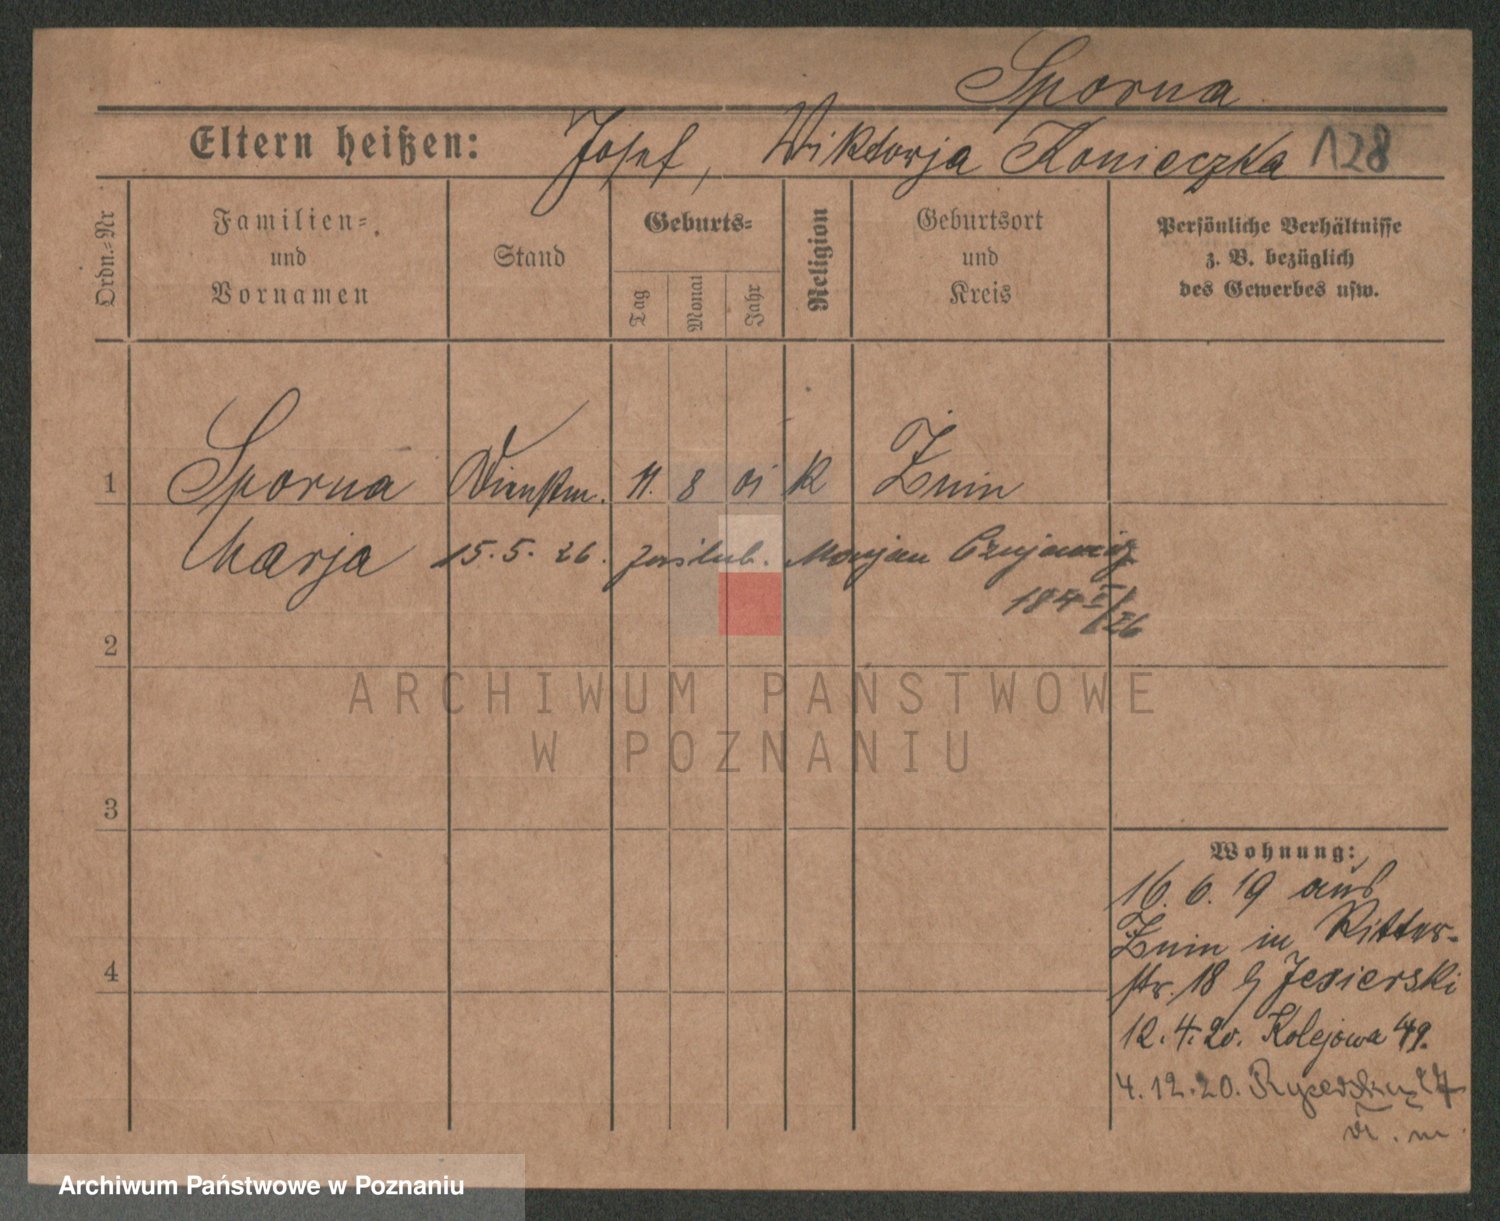 Sporna
Eltern heißen: Josef, Wiktorja Konieczka 128
Ordn.=Nr
Familien=
und
Vornamen
Stand
Geburts=
Tag
Monat
Jahr
Religion
Geburtsort
und
Kreis
Persönliche Verhältnisse
z. B. bezüglich
des Gewerbes usw.
1 Sporna Dienstm. 11. 8 01 K Żnin
Marja 15. 5. 26. zaślub. Marjan
184
26
2
ARCHIWUM PAŃSTWOWE
W POZNANIU
3
Wohnung:
16. 6. 19 aus
Żnin in Ritter-
str. 18 b/ Jezierski
4
12. 4. 20. Kolejowa 49.
4. 12. 20.
Archiwum Państwowe w Poznaniu